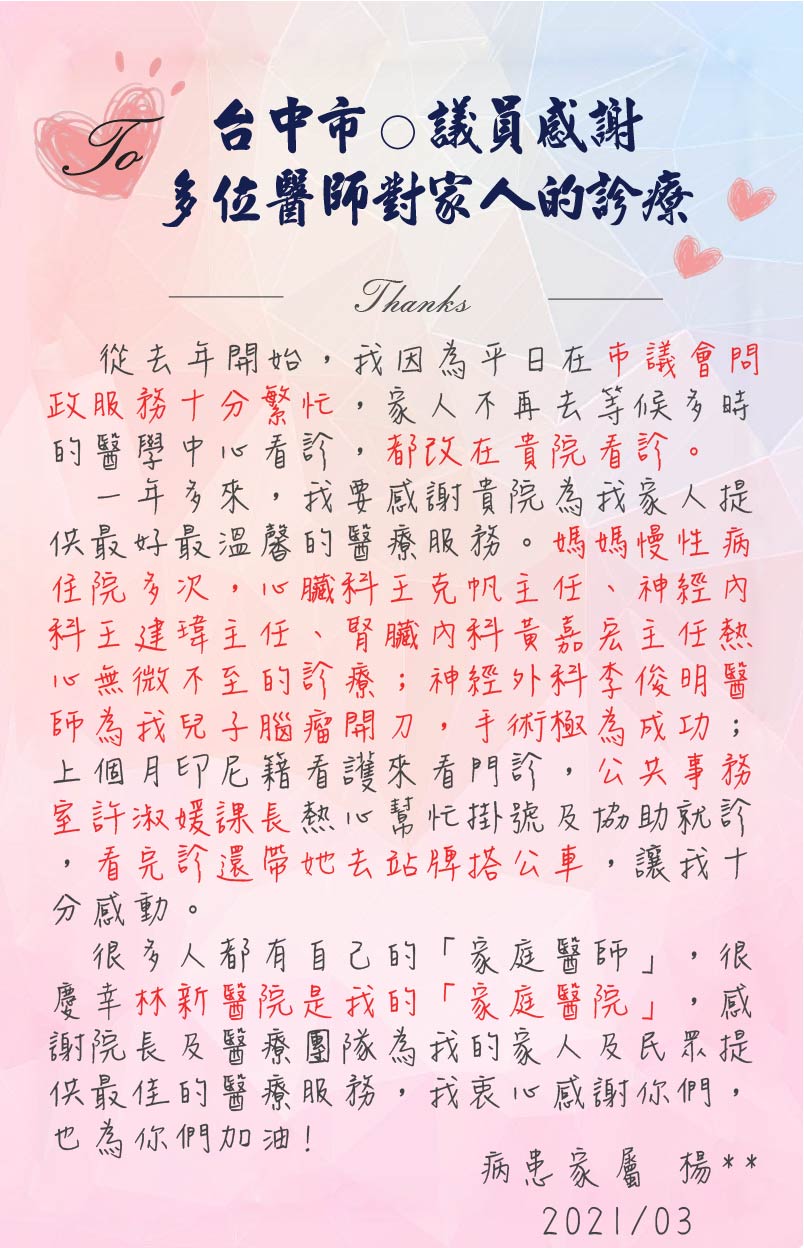 To
台中市○議員感謝
多位醫師對家人的診療
Thanks
從去年開始，我因為平日在市議會問
政服務十分繁忙，家人不再去等候多時
的醫學中心看診，都改在貴院看診。
一年多來，我要感謝貴院為我家人提
供最好最溫馨的醫療服務。媽媽慢性病
住院多次，心臟科王克帆主任、神經內
科王建瑋主任、腎臟內科黃嘉宏主任熱
心無微不至的診療；神經外科李俊明醫
師為我兒子腦瘤開刀，手術極為成功；
上個月印尼籍看護來看門診，公共事務
室許淑媛課長熱心幫忙掛號及協助就診
，看完診還帶她去站牌搭公車，讓我十
分感動。
很多人都有自己的「家庭醫師」，很
慶幸林新醫院是我的「家庭醫院」，感
謝院長及醫療團隊為我的家人及民眾提
供最佳的醫療服務，我衷心感謝你們，
也為你們加油！
病患家屬 楊**
2021/03